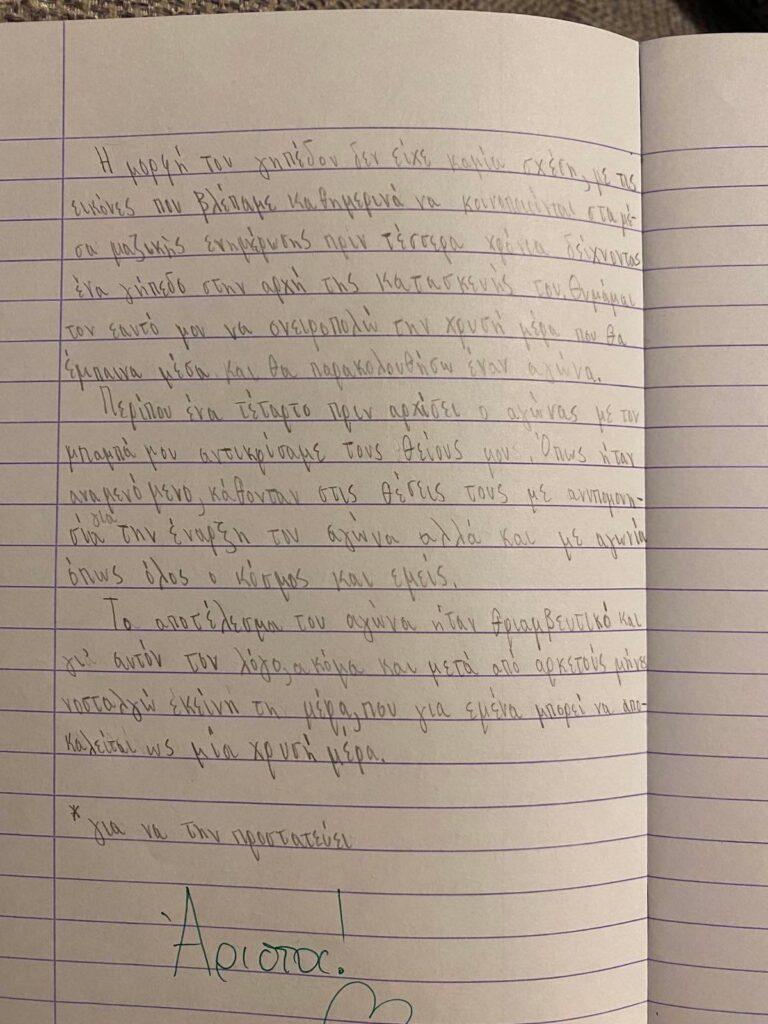 Η μορφή του γηπέδου δεν είχε καμία σχέση, με τις
εικόνες που βλέπαμε καθημερινά να κοινοποιούνται στα μέ-
σα μαζικής ενημέρωσης πριν τέσσερα χρόνια δείχνοντας
ένα γήπεδο στην αρχή της κατασκευής του. Θυμάμαι
τον εαυτό μου να ονειροπολώ την χρυσή μέρα που θα
έμπαινα μέσα και θα παρακολουθήσω έναν αγώνα.
Περίπου ένα τέταρτο πριν αρχίσει ο αγώνας με τον
μπαμπά μου αντικρίσαμε τους θείους μου. Όπως ήταν
αναμενόμενο, κάθονταν στις θέσεις τους με ανυπομονη-
σία για την έναρξη του αγώνα αλλά και με αγωνία
όπως όλος ο κόσμος και εμείς.
Το αποτέλεσμα του αγώνα ήταν θριαμβευτικό και
γι' αυτόν τον λόγο, ακόμα και μετά από αρκετούς μήνες
νοσταλγώ εκείνη τη μέρα, που για εμένα μπορεί να απο-
καλείται ως μία χρυσή μέρα.
* για να την προστατεύει
Άριστος!